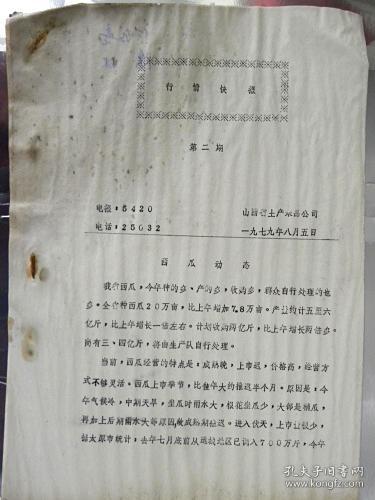 行情快报
第二期
电报:5420
山西省土产果品公司
电话:25632
一九七九年八月五日
西瓜动态
我省西瓜,今年种的多、产的多,收购多,群众自行处理的也
多。全省种西瓜20万亩,比上年增加7.8万亩。产量约计五至六
亿斤,比上年增长一倍左右。计划收购两亿斤,比上年增长两倍多。
尚有三、四亿斤,将由生产队自行处理。
当前,西瓜经营的特点是:成熟晚,上市迟,价格高,经营方
式不够灵活。西瓜上市季节,比往年大约推迟半个月。原因是:今
年气候冷,中期天旱,坐瓜时雨水大,根花坐瓜少,大部是梢瓜,
再加上后期雨水大等原因,故成熟期推迟。进入伏天,上市量很少,
据太原市统计,去年七月底前从运城地区已调入700万斤,今年
孔夫子旧书网